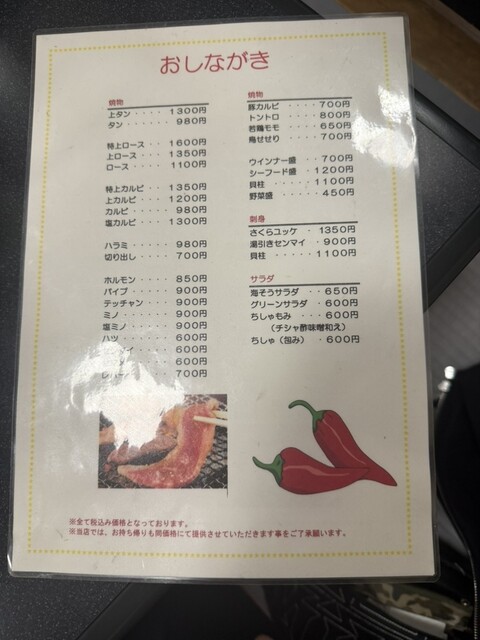 おしながき
焼物
上タン ‥‥‥ 1300円
タン ‥‥‥ 980円
特上ロース ‥ 1600円
上ロース ‥‥ 1350円
ロース ‥‥‥ 1100円
特上カルビ ‥ 1350円
上カルビ ‥‥ 1200円
カルビ ‥‥‥ 980円
塩カルビ ‥‥ 1300円
ハラミ ‥‥‥ 980円
切り出し ‥‥ 700円
ホルモン ‥‥ 850円
パイプ ‥‥‥ 900円
テッチャン ‥ 900円
ミノ ‥‥‥ 900円
塩ミノ ‥‥‥ 900円
ハツ ‥‥‥ 600円
600円
600円
700円
焼物
豚カルビ ‥‥ 700円
トントロ ‥‥ 800円
若鶏モモ ‥‥ 650円
鳥せせり ‥‥ 700円
ウインナー盛 ‥ 700円
シーフード盛 ・1200円
貝柱 ‥‥‥ 1100円
野菜盛 ‥‥‥ 450円
刺身
さくらユッケ ・1350円
湯引きセンマイ ・900円
貝柱 ‥‥‥ 1100円
サラダ
海そうサラダ ‥ 650円
グリーンサラダ ・600円
ちしゃもみ ‥‥ 600円
(チシャ酢味噌和え)
ちしゃ(包み) ・600円
※全て税込み価格となっております。
※当店では、お持ち帰りも同価格にて提供させていただきます事をご了承願います。